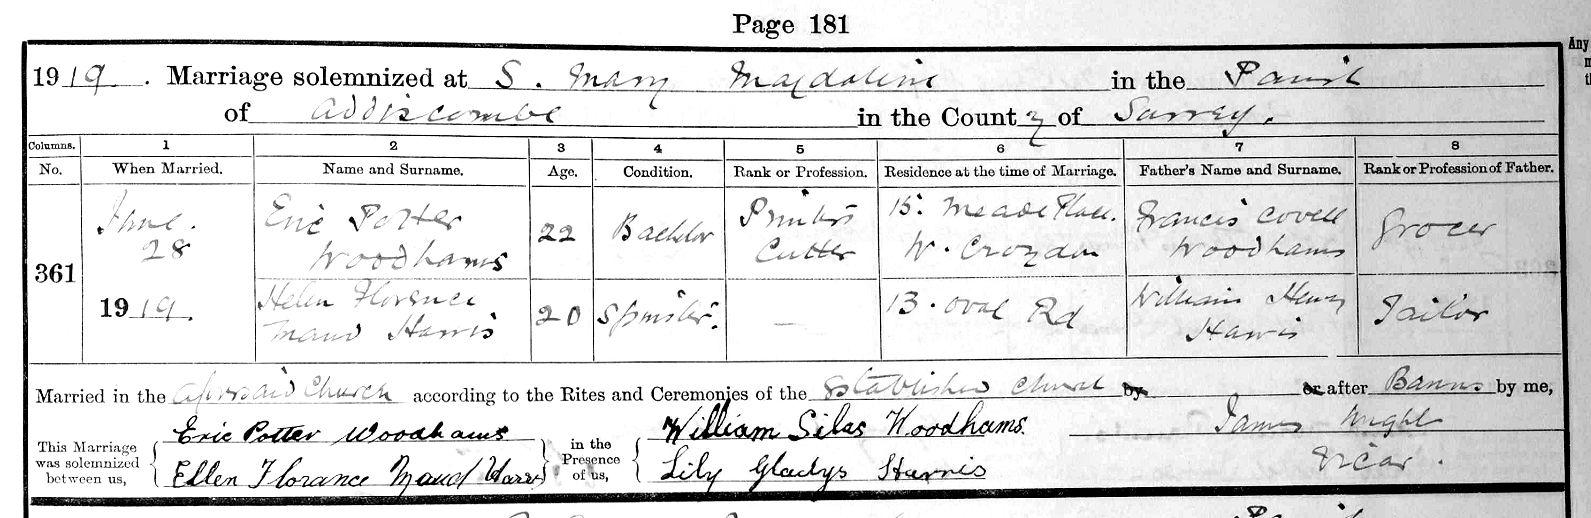 Page 181
1919. Marriage solemnized at S. Mary Magdalene in the Parish
of Addiscombe in the County of Surrey.
Columns. 1 2 3 4 5 6 7 8
No. When Married. Name and Surname. Age. Condition. Rank or Profession. Residence at the time of Marriage. Father's Name and Surname. Rank or Profession of Father.
361
June 28 1919.
Eric Potter Woodhams 22 Bachelor Printer's Cutter 15. Meade Place. W. Croydon Francis Covell Woodhams Grocer
Helen Florence Maud Harris 20 Spinster. — 13. Oval Rd William Henry Harris Tailor
Married in the aforesaid Church according to the Rites and Ceremonies of the Established Church by or after Banns by me,
This Marriage was solemnized between us,
Eric Potter Woodhams
Ellen Florance Maud Harris
in the Presence of us,
William Silas Woodhams.
Lily Gladys Harris
James
Vicar.
Any